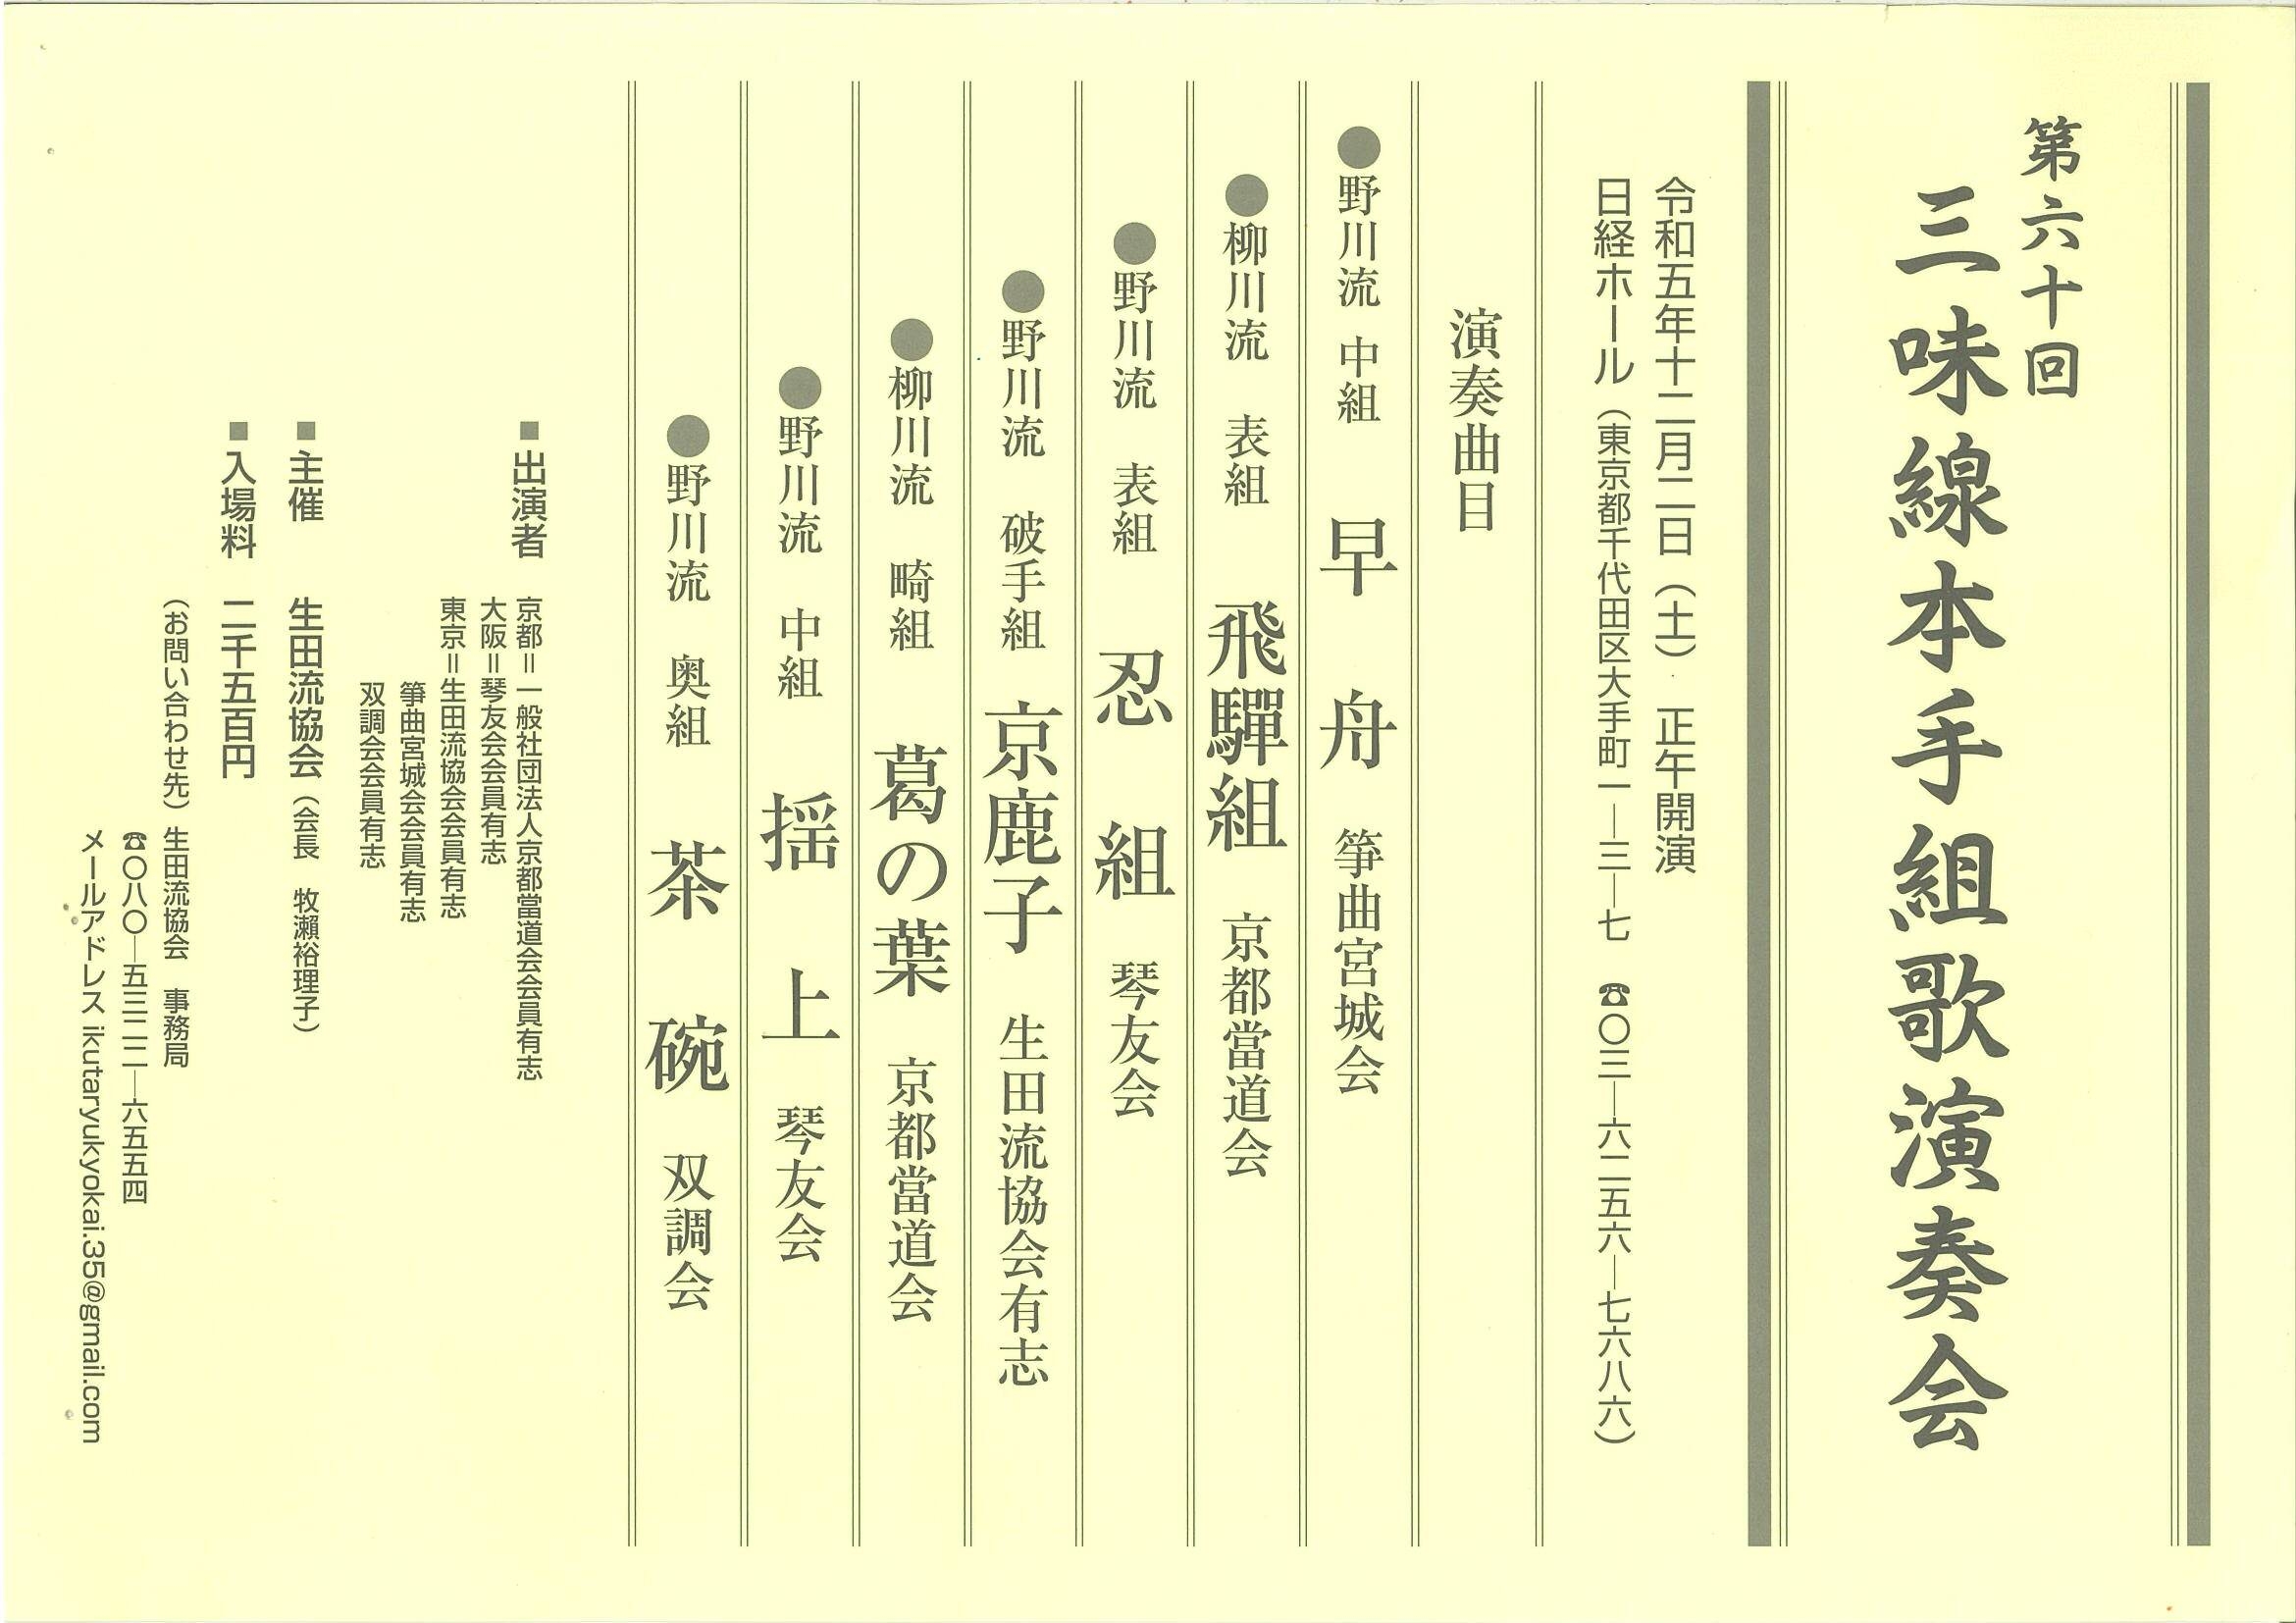 第六十回
三味線本手組歌演奏会
令和五年十二月二日（土） 正午開演
日経ホール（東京都千代田区大手町一―三―七 ☎〇三―六二五六―七六八六）
演奏曲目
●野川流 中組 早舟 箏曲宮城会
●柳川流 表組 飛驒組 京都當道会
●野川流 表組 忍組 琴友会
●野川流 破手組 京鹿子 生田流協会有志
●柳川流 畸組 葛の葉 京都當道会
●野川流 中組 揺上 琴友会
●野川流 奥組 茶碗 双調会
■出演者 京都＝一般社団法人京都當道会会員有志
大阪＝琴友会会員有志
東京＝生田流協会会員有志
箏曲宮城会会員有志
双調会会員有志
■主催 生田流協会（会長 牧瀬裕理子）
■入場料 二千五百円
（お問い合わせ先）生田流協会 事務局
☎〇八〇―五三二二―六五五四
メールアドレス ikutaryukyokai.35@gmail.com